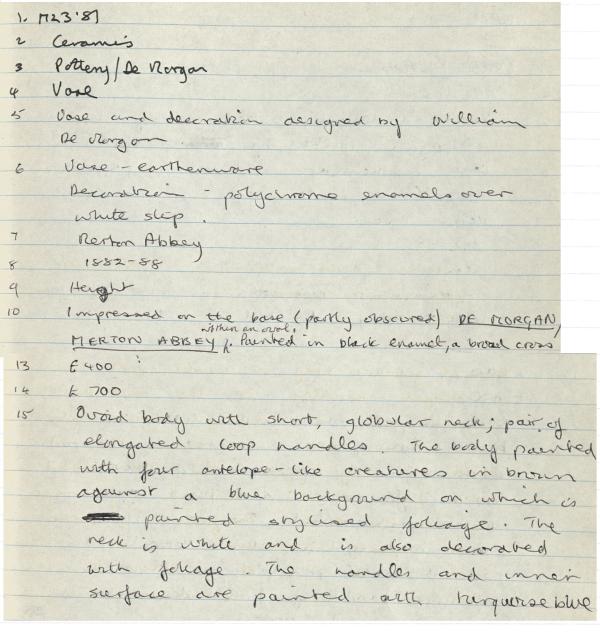 1. M23'81
2 Ceramics
3 Pottery/De Morgan
4 Vase
5 Vase and decoration designed by William
De Morgan.
6 Vase - earthenware
Decoration - polychrome enamels over
white slip.
7 Merton Abbey
8 1882-88
9 Height
10 Impressed on the base (partly obscured) DE MORGAN,
within an oval.
MERTON ABBEY, Painted in black enamel, a broad cross
13 £400
14 £700
15 Ovoid body with short, globular neck; pair of
elongated loop handles. The body painted
with four antelope-like creatures in brown
against a blue background on which is
painted stylised foliage. The
neck is white and is also decorated
with foliage. The handles and inner
surface are painted with turquoise blue